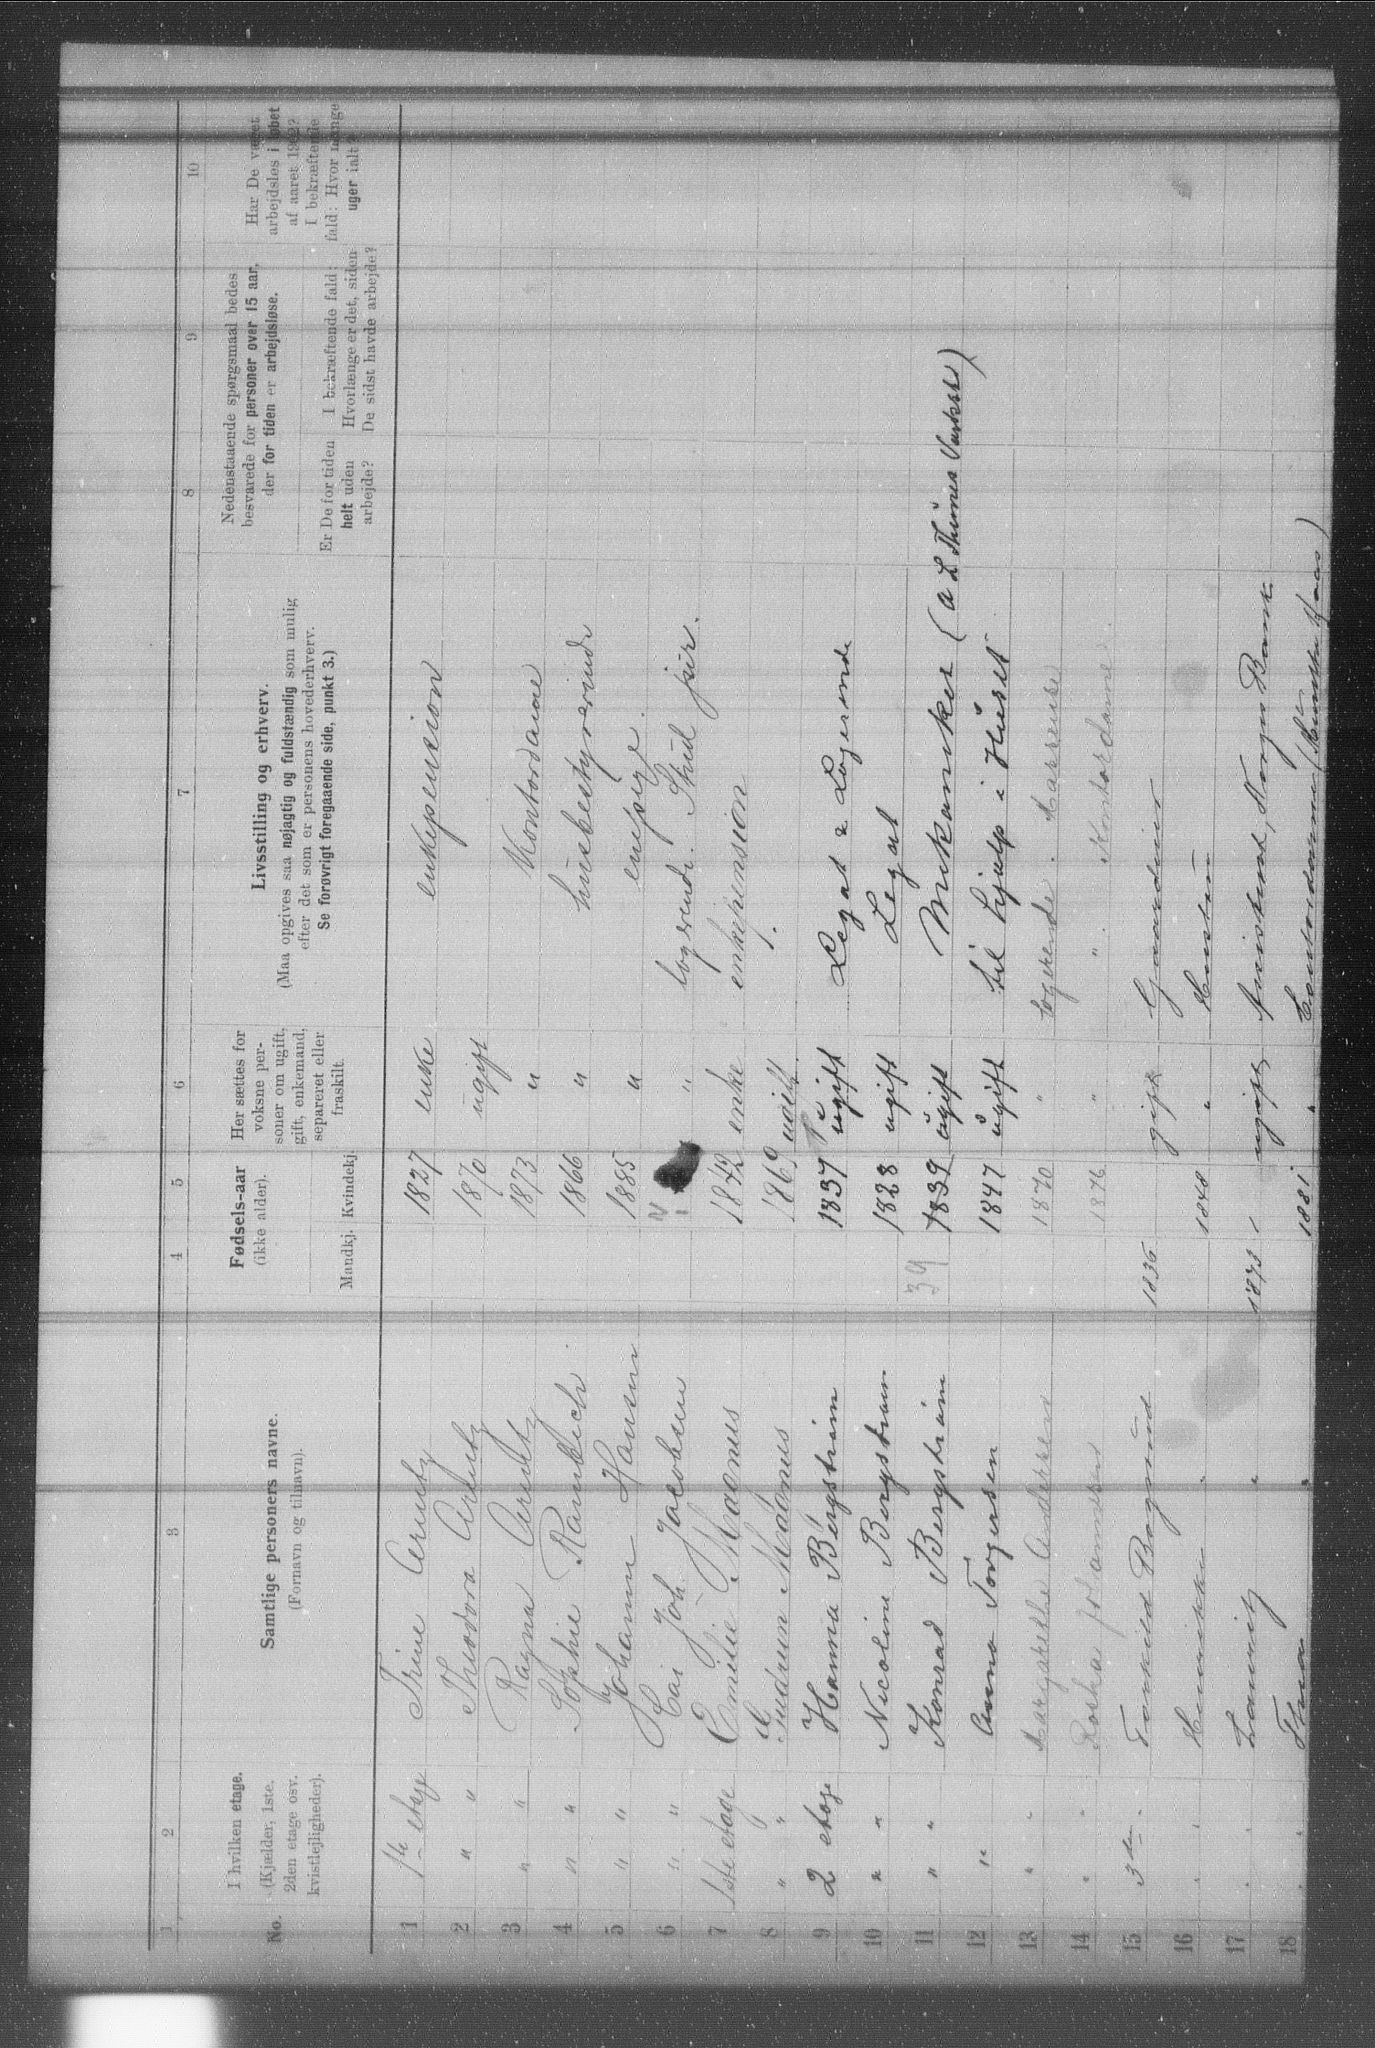 1 2 3 4 5 6 7 8 9 10
No.
I hvilken etage.
(Kjælder, 1ste.
2den etage osv.
kvistlejligheder).
Samtlige personers navne.
(Fornavn og tilnavn).
Fødsels-aar
(ikke alder).
Mandkj. Kvindekj.
Her sættes for
voksne per-
soner om ugift,
gift, enkemand,
separeret eller
fraskilt.
Livsstilling og erhverv.
(Maa opgives saa nøjagtig og fuldstændig som mulig
efter det som er personens hovederhverv.
Se forøvrigt foregaaende side, punkt 3.)
Nedenstaaende spørgsmaal bedes
besvarede for personer over 15 aar,
der for tiden er arbejdsløse.
Er De for tiden
helt uden
arbejde?
I bekræftende fald:
Hvorlænge er det, siden
De sidst havde arbejde?
Har De været
arbejdsløs i løbet
af aaret 1902?
I bekræftende
fald: Hvor mange
uger ialt?
1 1ste etage Trine Arentz 1827 enke enkepension
2 " " Theodora Arentz 1870 ugift
3 " " Ragna Arentz 1873 " Kontordame
4 " " Sophie 1866 " husbestyrerinde
5 " " Johanne Hansen 1885 " enepige.
6 " " Cai Joh. Jacobsen " logerende. Stud jur.
7 1ste etage Emilie Magnus 1842 enke enkepension
8 " " Gudrun Magnus 1869 ugift "
9 2 etage Hanna Bergstrøm 1837 ugift Legat & Logerende
10 " " Nicoline Bergstrøm 1828 ugift Legat
11 " " Konrad Bergstrøm 39 1839 ugift Mekaniker (A L Thünes Værksted)
12 " " Anna Torgersen 1847 ugift til hjælp i Huset
13 " " Margarethe Andersen 1870 " logerende.
14 " " Johannesen 1876 " " . Kontordame.
15 3die . Torkild Bagerud 1836 gift
16 . . . 1848 "
17 . . Lauritz . 1873 ugift Assistent, Norges Bank
18 . . Thea . 1881 " Contordame